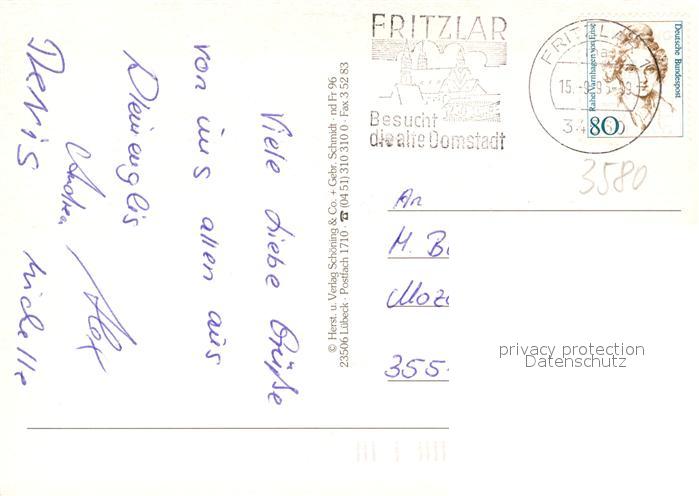 FRITZLAR
Besucht
die alte Domstadt
FRITZLAR
15.-9.9
34
Deutsche Bundespost
Rahel Varnhagen von Ense
80
3580
Viele liebe Grüße
von uns allen aus
Kleinenglis
Andrea Alex
Denis Michelle
© Herst. u. Verlag Schöning & Co. + Gebr. Schmidt · nd Fr 96
23506 Lübeck · Postfach 1710 · ☎ (04 51) 310 310 0 · Fax 3 52 83
An
H. B
Moz
355
privacy protection
Datenschutz